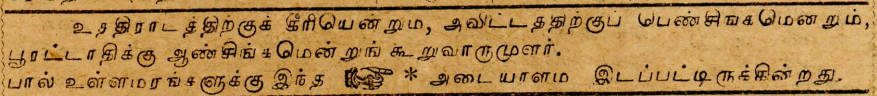 உத்திராடத்திற்குக் கீரியென்றும, அவிட்டத்திற்குப் பெண்சிங்கமென்றும்,
பூரட்டாதிக்கு ஆண்சிங்கமென்றுங் கூறுவாருமுளர்.
பால் உள்ளமரங்களுக்கு இந்த ☞ * அடையாளம இடப்பட்டிருக்கின்றது.